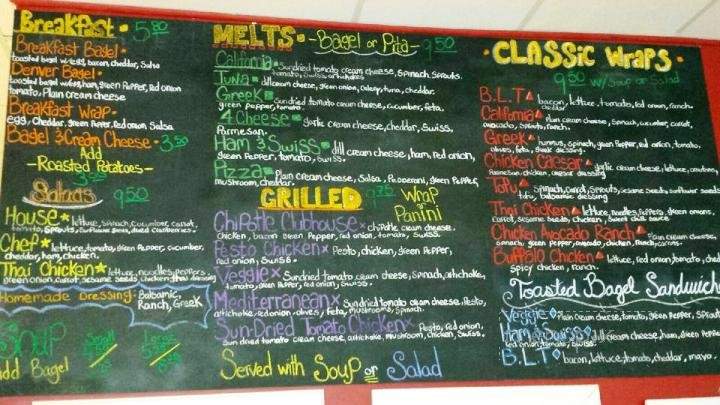 Breakfast • 5.80
Breakfast Bagel •
toasted bagel w/egg, bacon, cheddar, Salsa
Denver Bagel •
toasted bagel w/egg, ham, green Pepper, Red onion
tomato, Plain cream cheese
Breakfast Wrap •
egg, Cheddar, green Pepper, Red onion, Salsa
Bagel & Cream Cheese •
Add
-Roasted Potatoes-
Salads 9.50
House* lettuce, Spinach, Cucumber, carrot,
tomato, Sprouts, Sunflower Seeds, dried Cranberries
Chef* lettuce, tomato, green Pepper, cucumber,
cheddar, ham, chicken
Thai Chicken* lettuce, noodles, peppers,
green onion, Carrot, Sesame Seeds, Chicken, thai dressing
Homemade Dressing • Balsamic,
Ranch, Greek
Soup
Add Bagel
MELTS • -Bagel or Pita- 9.50
California • Sundried tomato cream cheese, Spinach, Sprouts,
Tuna • dill cream cheese, green onion, Celery, tuna, cheddar
Greek • Sundried tomato cream cheese, cucumber, feta,
green pepper, tomato
4 Cheese • garlic cream cheese, cheddar, Swiss,
Parmesan
Ham & Swiss • dill cream cheese, ham, red onion,
green Pepper, tomato, Swiss
Pizza • Plain cream cheese, Salsa, Pepperoni, green Pepper,
mushroom, cheddar
GRILLED Wrap
Panini
Chipotle Clubhouse x chipotle cream cheese,
Chicken, bacon, green Pepper, red onion, tomato, Swiss
Pesto Chicken x Pesto, chicken, green Pepper,
red onion, Swiss
Veggie x Sundried tomato cream cheese, Spinach, artichoke,
tomato, green Pepper, red onion, Swiss
Mediterranean x Sundried tomato cream cheese, Pesto,
artichoke, red onion, olives, feta, mushrooms, Spinach
Sun-Dried Tomato Chicken x Pesto, red onion,
Sun dried tomato cream cheese, artichoke, mushroom, Chicken, Swiss
Served with Soup or Salad
• CLASSIC Wraps •
9.50 w/Soup or Salad
B.L.T bacon, lettuce, tomato, red onion, ranch,
cheddar
California Plain cream cheese, Spinach, cucumber, carrot,
avocado, Sprouts, ranch
Greek hummus, spinach, green Pepper, red onion, tomato,
olives, feta, Greek dressing
Chicken Caesar garlic cream cheese, lettuce,
Parmesan cheese, caesar dressing
Tofu Spinach, carrot, Sprouts, Sesame Seeds, Sunflower Seeds
tofu, balsamic dressing
Thai Chicken lettuce, noodles, Peppers, green onions,
Carrot, Sesame Seeds, Chicken, Sweet chili sauce
Chicken Avocado Ranch Plain cream cheese,
spinach, green pepper, avocado, chicken, ranch
Buffalo Chicken lettuce, red onion, tomato,
spicy chicken, ranch
Toasted Bagel Sandwiche
Veggie Plain cream cheese, tomato, green Pepper,
Ham & Swiss dill cream cheese, ham, green Pepper
red onion, tomato, Swiss
B.L.T bacon, lettuce, tomato, cheddar, mayo